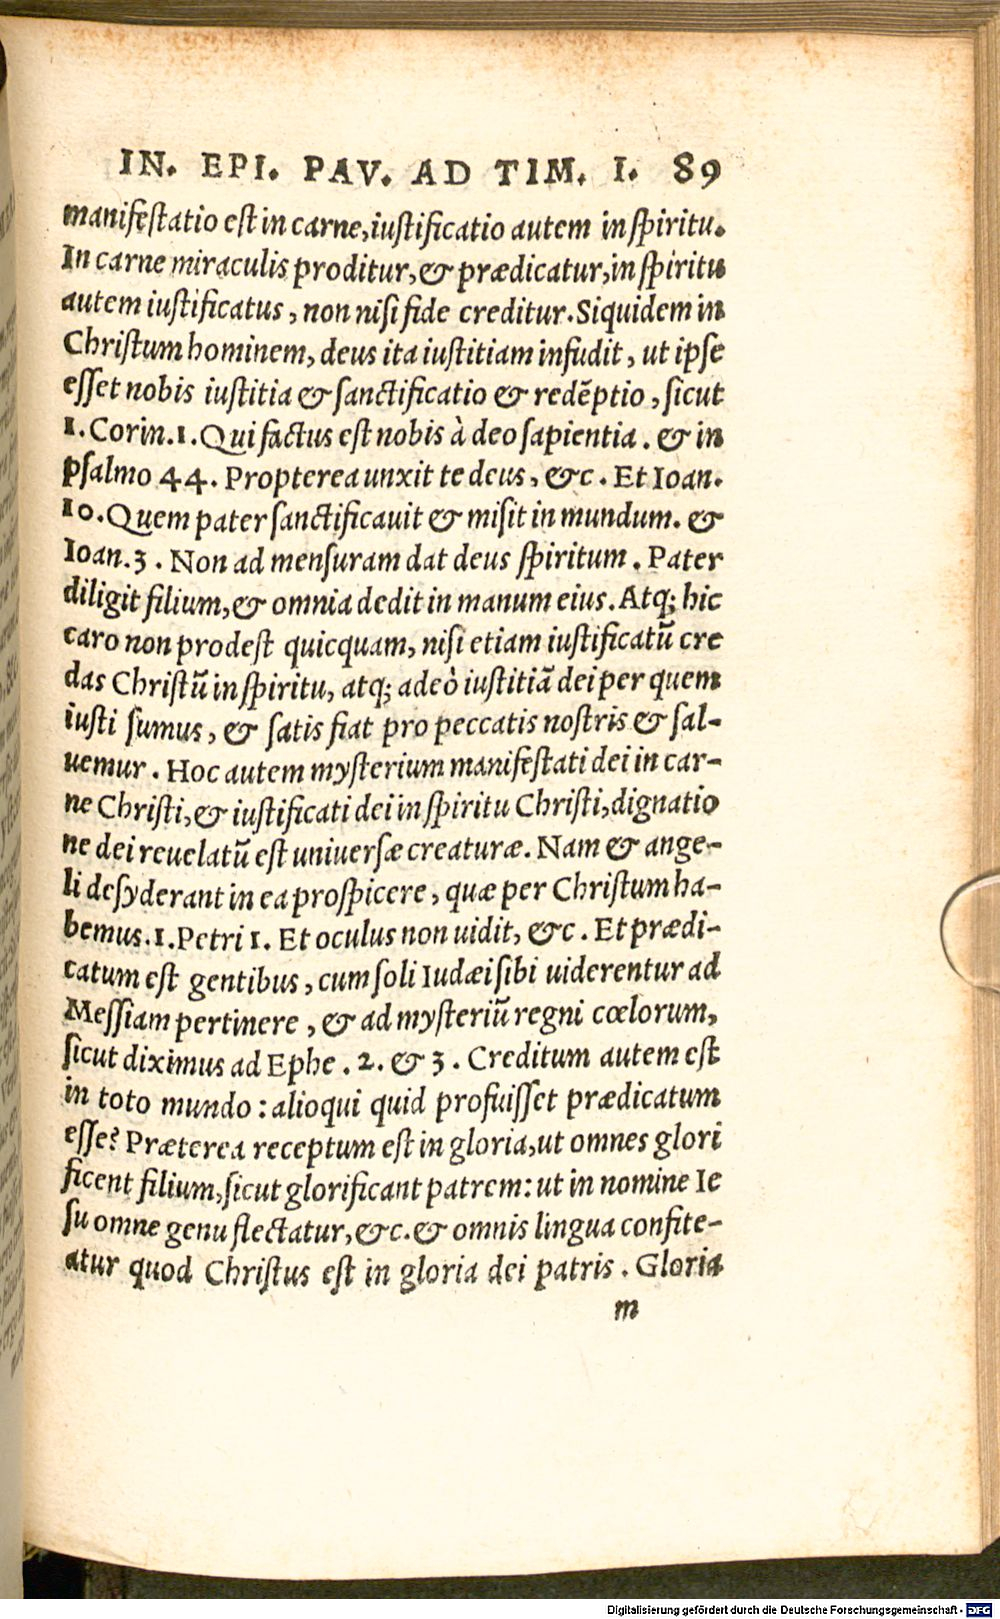 IN. EPI. PAV. AD TIM. I. 89
manifestatio est in carne, iustificatio autem in spiritu.
In carne miraculis proditur, & prædicatur, in spiritu
autem iustificatus, non nisi fide creditur. Siquidem in
Christum hominem, deus ita iustitiam infudit, ut ipse
esset nobis iustitia & sanctificatio & redẽptio, sicut
1. Corin. 1. Qui factus est nobis à deo sapientia. & in
psalmo 44. Propterea unxit te deus, &c. Et Ioan.
10. Quem pater sanctificauit & misit in mundum. &
Ioan. 3. Non ad mensuram dat deus spiritum. Pater
diligit filium, & omnia dedit in manum eius. Atq; hic
caro non prodest quicquam, nisi etiam iustificatũ cre
das Christũ in spiritu, atq; adeò iustitiã dei per quem
iusti sumus, & satis fiat pro peccatis nostris & sal-
uemur. Hoc autem mysterium manifestati dei in car-
ne Christi, & iustificati dei in spiritu Christi, dignatio
ne dei reuelatũ est uniuersæ creaturæ. Nam & ange-
li desyderant in ea prospicere, quæ per Christum ha-
bemus. 1. Petri 1. Et oculus non uidit, &c. Et prædi-
catum est gentibus, cum soli Iudæi sibi uiderentur ad
Messiam pertinere, & ad mysteriũ regni cœlorum,
sicut diximus ad Ephe. 2. & 3. Creditum autem est
in toto mundo: alioqui quid profuisset prædicatum
esse? Præterea receptum est in gloria, ut omnes glori
ficent filium, sicut glorificant patrem: ut in nomine Ie
su omne genu flectatur, &c. & omnis lingua confite-
atur quod Christus est in gloria dei patris. Gloria
m
Digitalisierung gefördert durch die Deutsche Forschungsgemeinschaft - DFG